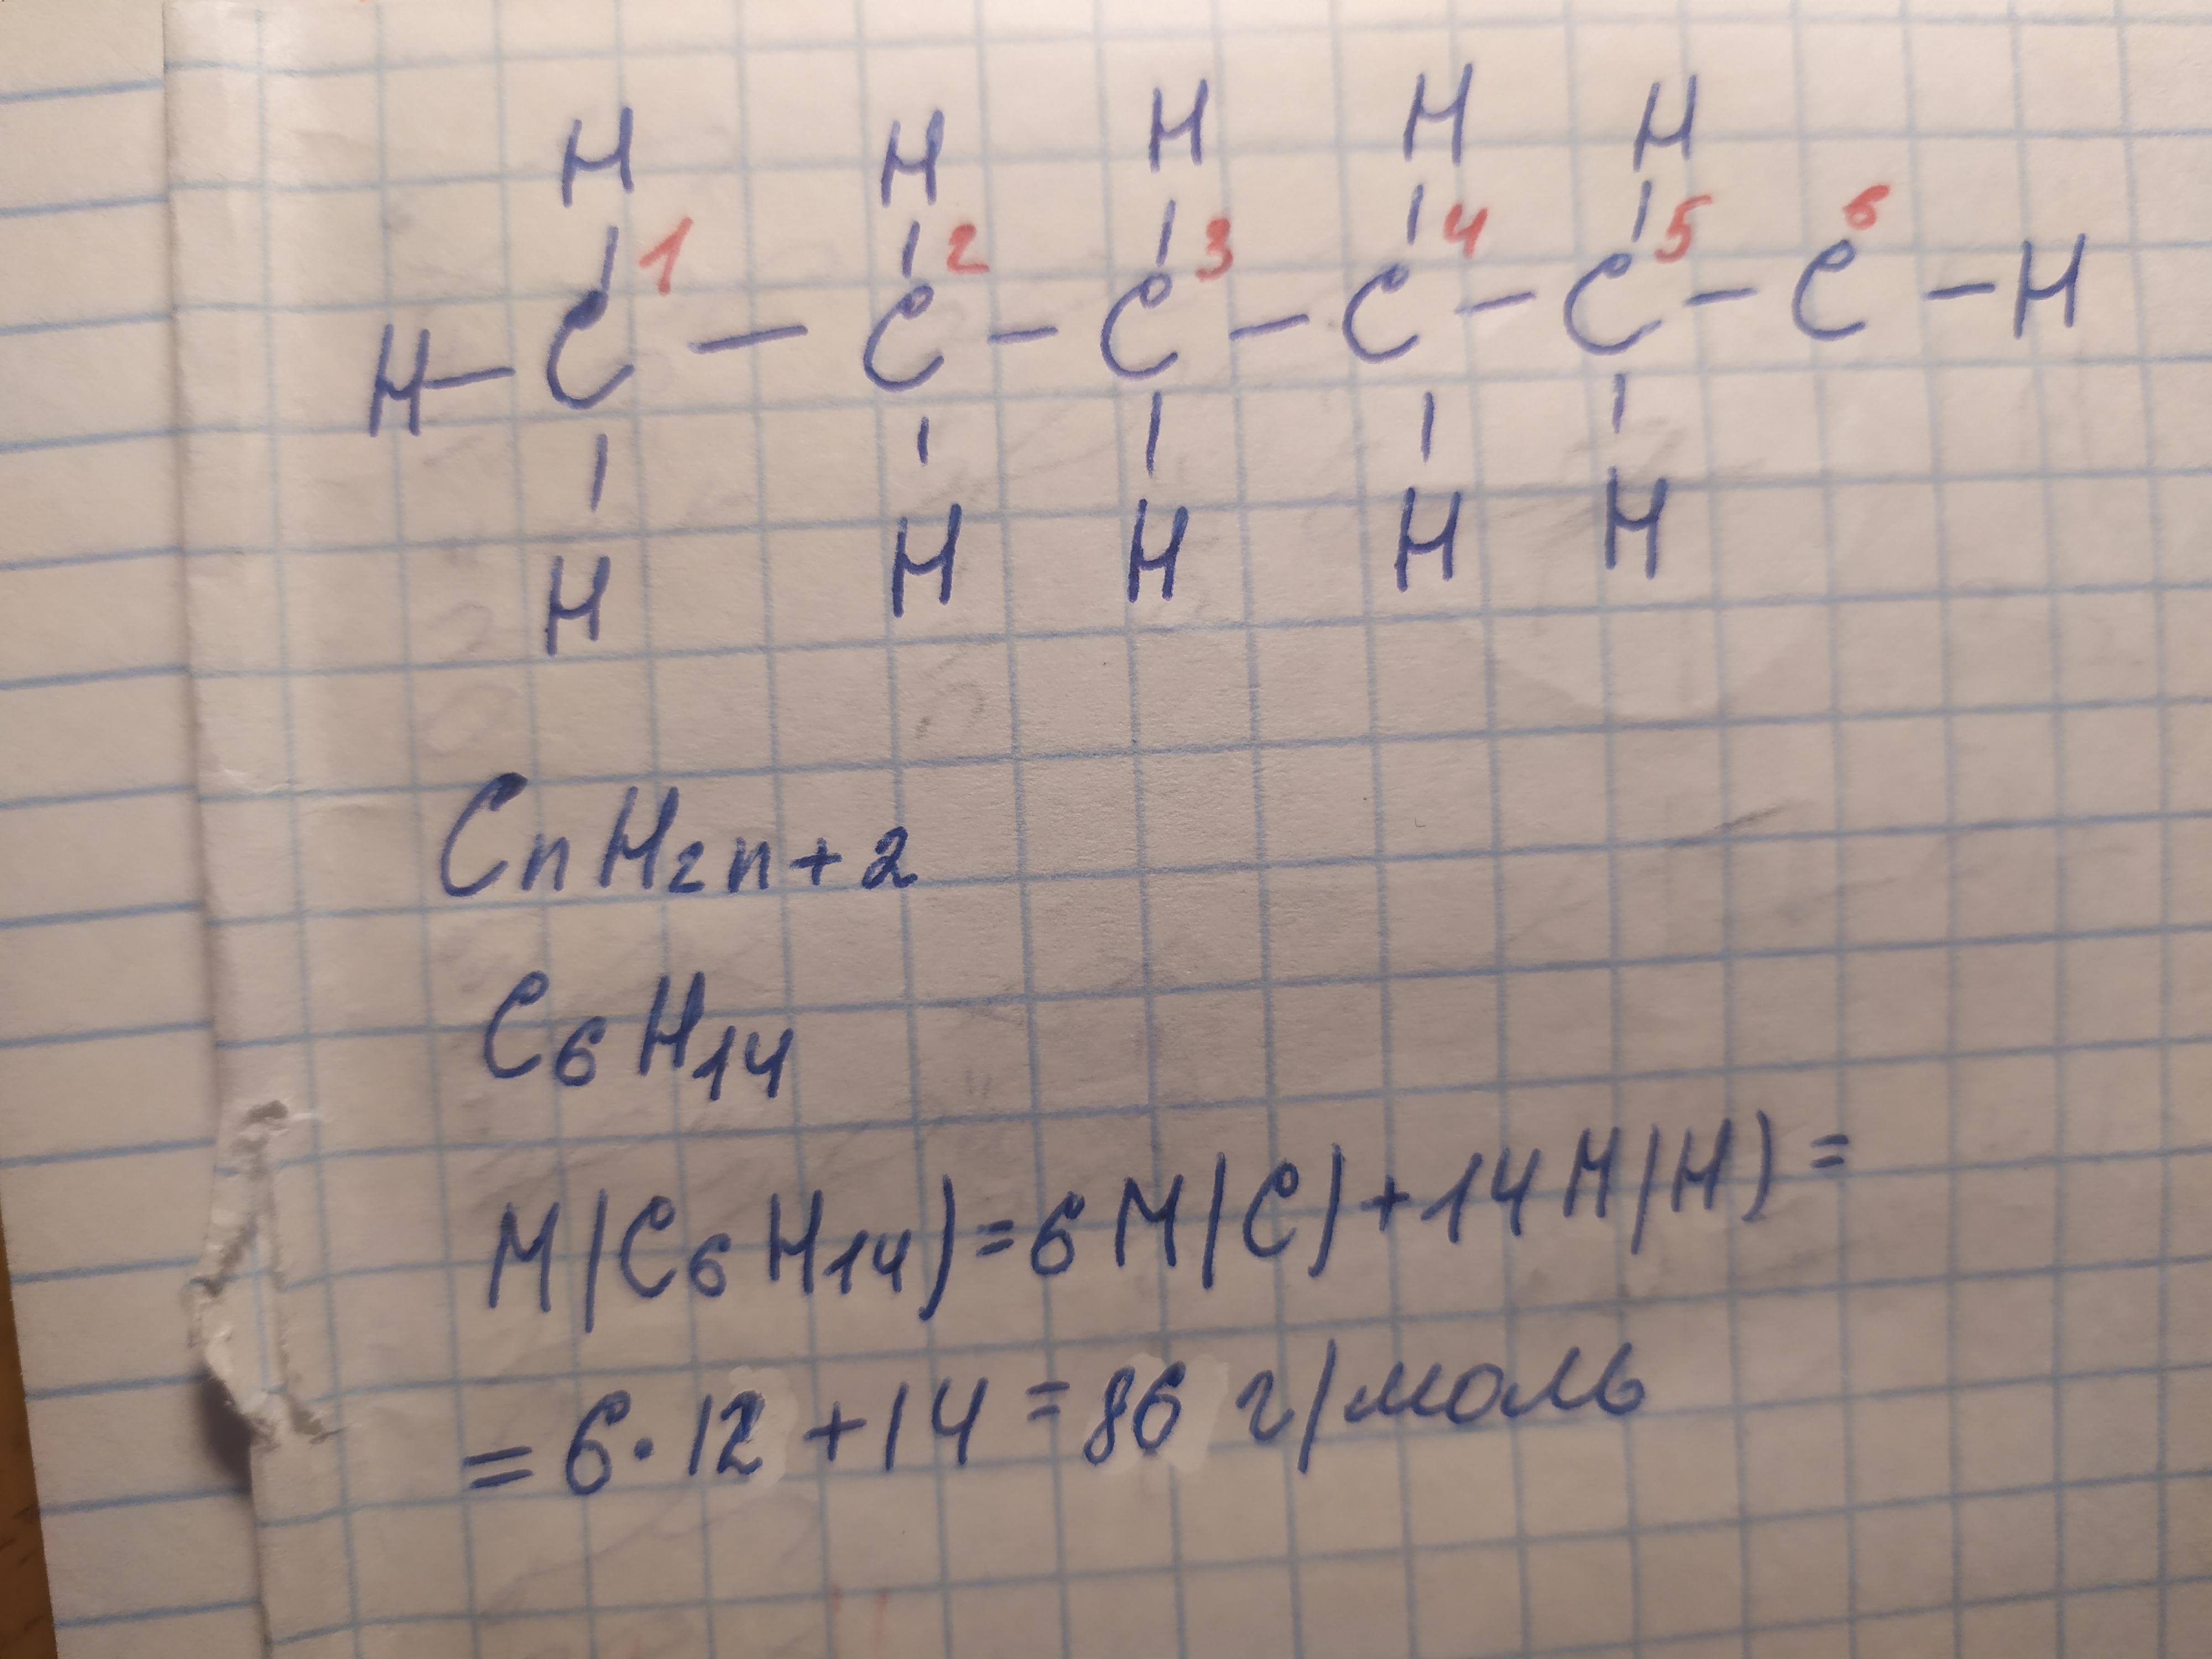 H H H H H
1 2 3 4 5 6
H–C–C–C–C–C–C–H
H H H H H
CnH2n+2
C6H14
M(C6H14)=6M(C)+14M(H)=
=6·12+14=86 г/моль